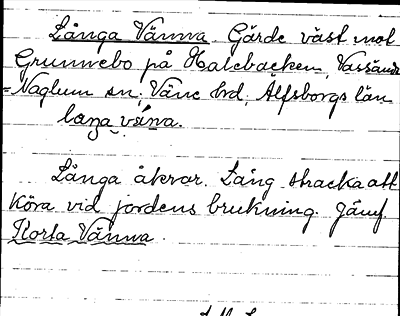 Långa Vänna. Gärde väst mot
Grunnebo på Halebacken, Vassända
=Naglum sn; Väne hrd, Älfsborgs län
laŋa väna.
Långa åkrar. Lång sträcka att
köra vid jordens brukning. Jämf.
Korta Vänna.